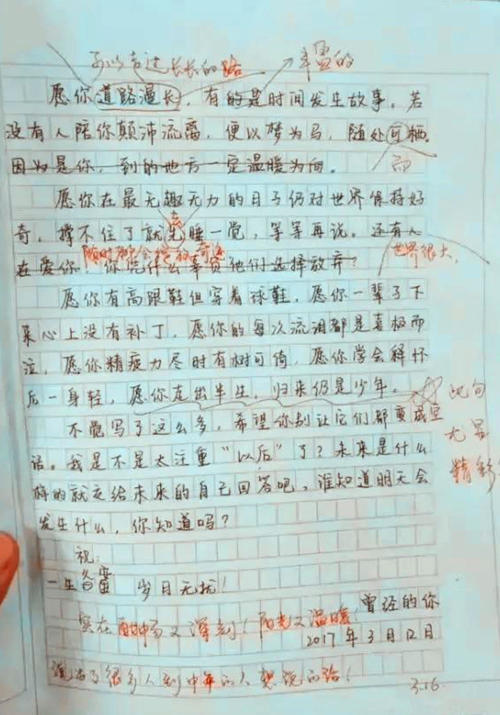 可以走过长长的路 丰富的
愿你道路漫长，有的是时间发生故事。若
没有人陪你颠沛流离，便以梦为马，随处可栖。
因为是你，到的地方一定温暖为向。 而
愿你在最无趣无力的日子仍对世界保持好
奇，撑不住了就先睡一觉，等等再说。还有人 去
在爱你 你凭什么辜负他们选择放弃？ 世界很大，
愿你有高跟鞋但穿着球鞋，愿你一辈子下
来心上没有补丁，愿你的每次流泪都是喜极而
泣，愿你精疲力尽时有树可倚，愿你学会释怀
后一身轻，愿你走出半生，归来仍是少年。 此句
不觉写了这么多，希望你别让它们都变成空 尤显
话。我是不是太注重“以后”了？未来是什么 精彩
样的就交给未来的自己回答吧，谁知道明天会
发生什么，你知道吗？
祝：
一生 岁月无忧！
曾经的你
实在 又深刻！阳光又温暖
2017年3月12日
说出了很多人到中年的人想说的话！
3.16